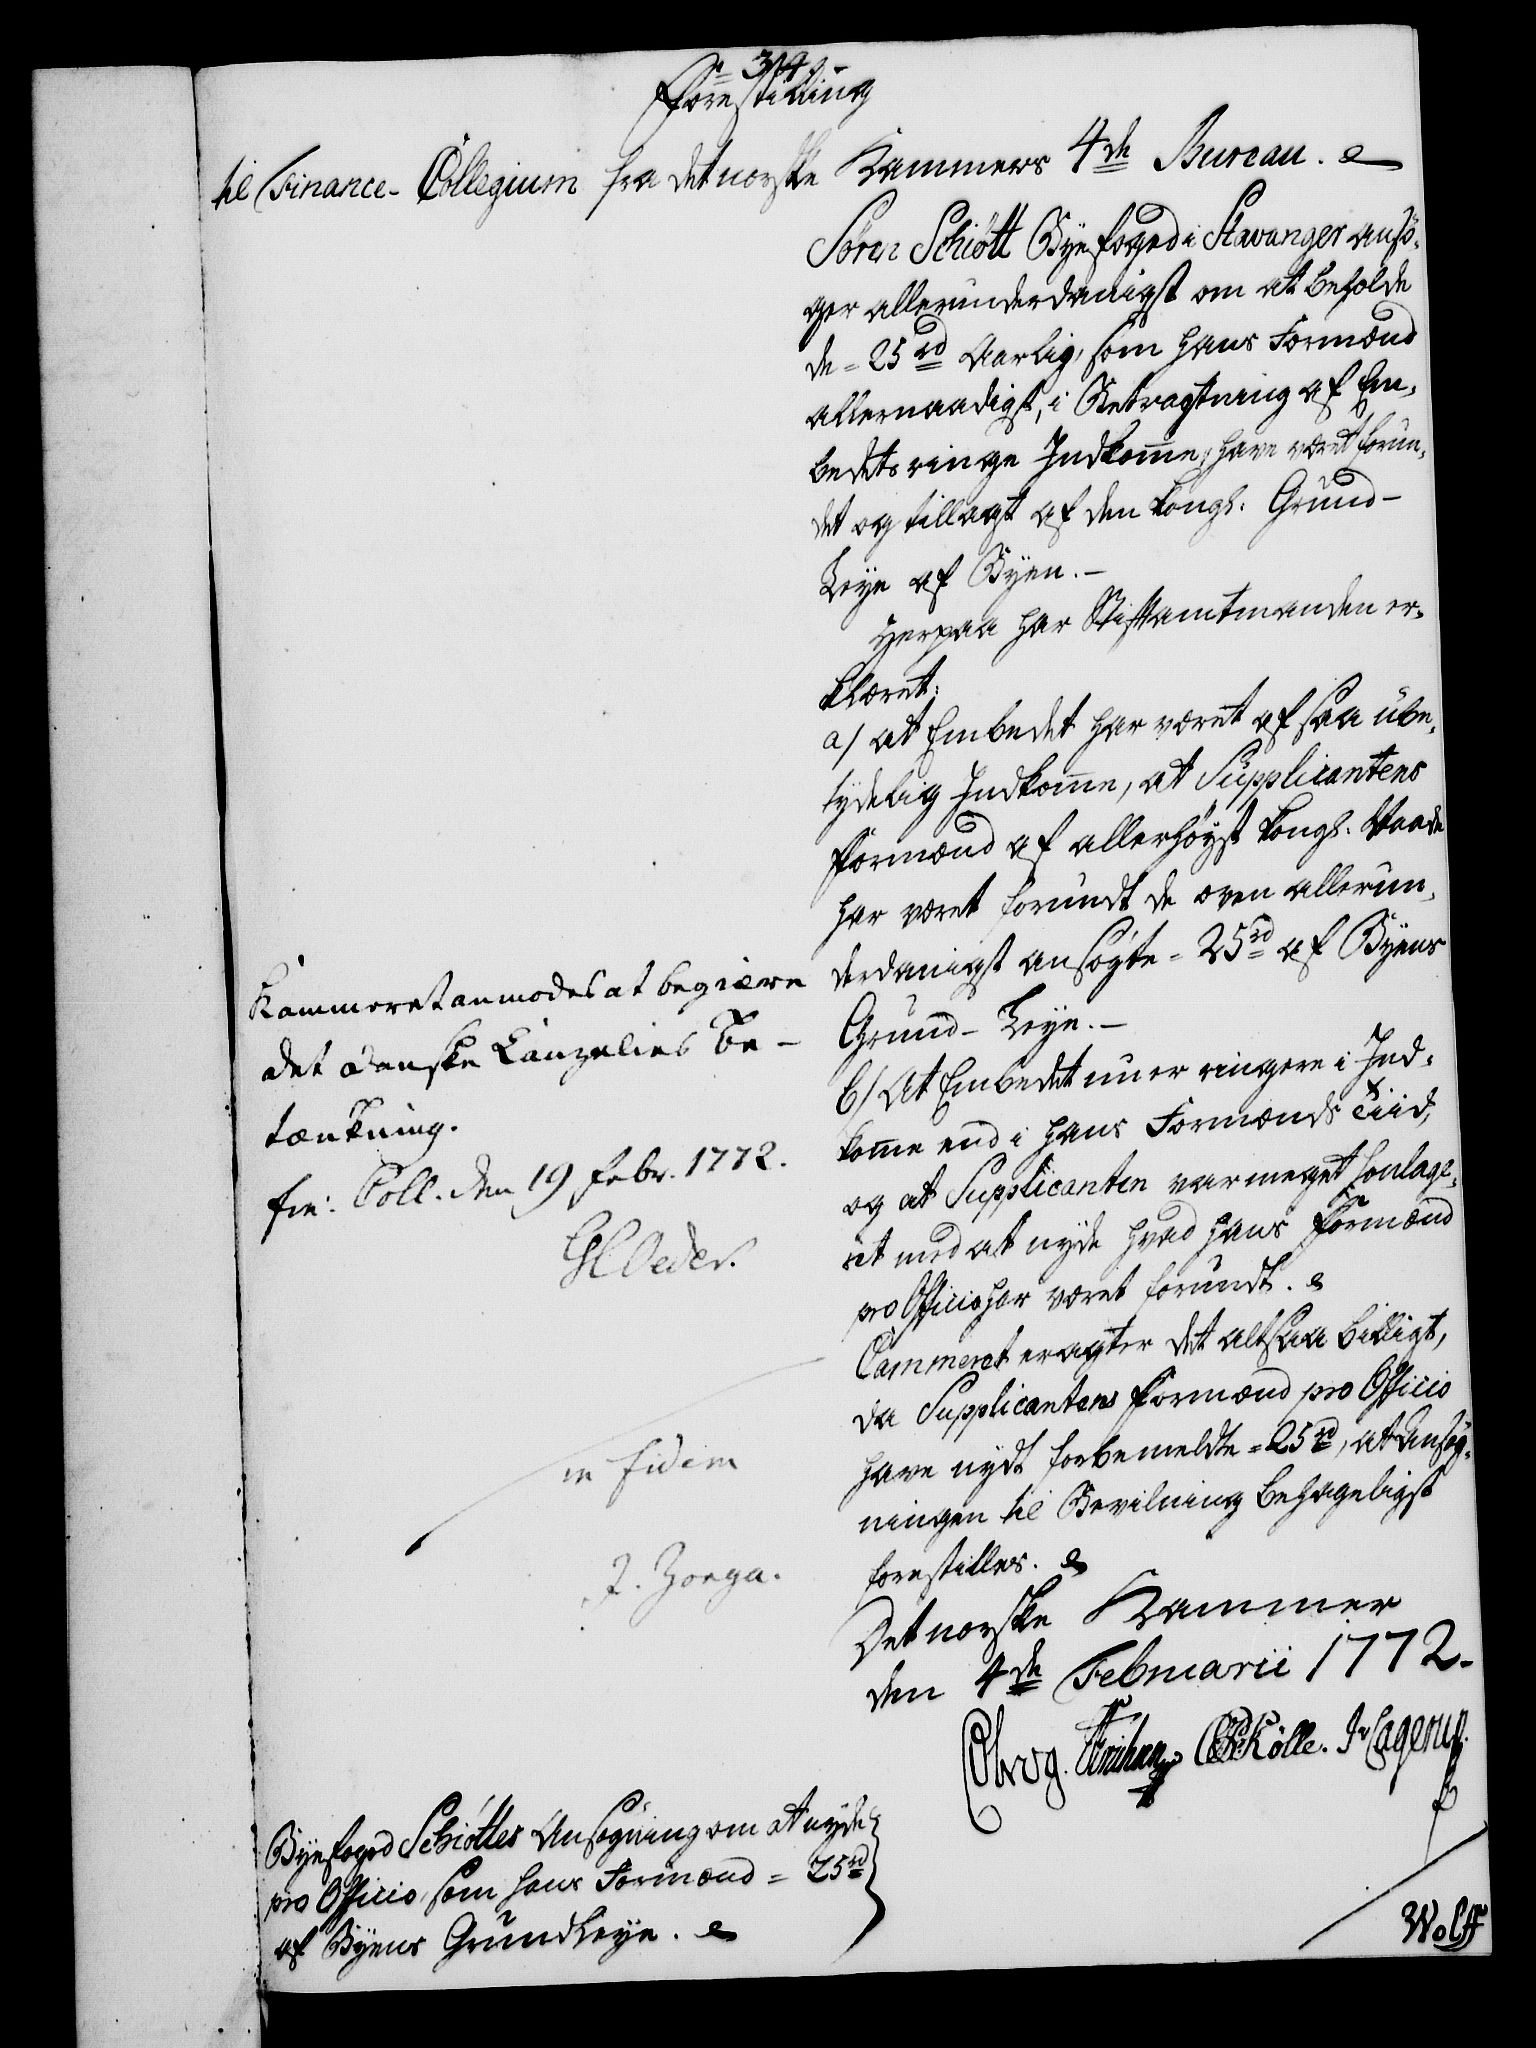 314.
Forestilling
til Finance-Collegium fra det norske Kammers 4de Bureau.
Sören Schiött Byefoged i Stavanger ansö-
ger allerunderdanigst om at beholde
de = 25 rd Aarlig, som hans Formænd
allernaadigst, i Betragtning af Em-
bedets ringe Indkom̅e, have været forun-
det og tillagt af den kongl. Grund-
Leye af Byen.-
Herpaa har Stiftamtmanden er-
klæret;
a/ at Embedet har været af saa ube-
tydelig Indkom̅e, at Supplicantens
Formænd af allerhöyst kongl. Naade
har været forundt de oven allerun-
derdanigst ansögte = 25 rd af Byens
Grund-Leye.-
b/ At Embedet nu er ringere i Ind-
kom̅e end i hans Formænds Tiid,
og at Supplicanten var meget
med at nyde hvad hans Formænd
pro Officio har været forundt.
Cammeret eragter det altsaa billigt,
da Supplicantens Formænd pro Officio
have nydt forbemeldte = 25 rd, at Ansög-
ningen til Bevilning behageligst
forestilles.
Det norske Kammer
den 4de Februarii 1772.
Lagerup.
Wolff
Kammeret anmodes at begiære
det danske Canzelies Be-
tænkning.
fin: Coll. den 19 febr. 1772.
Oeder.
in fidem
J. Zoega.
Byefoged Schiöttes Ansögning om at nyde
pro Officio, som hans Formænd = 25 rd
af Byens Grundleye.